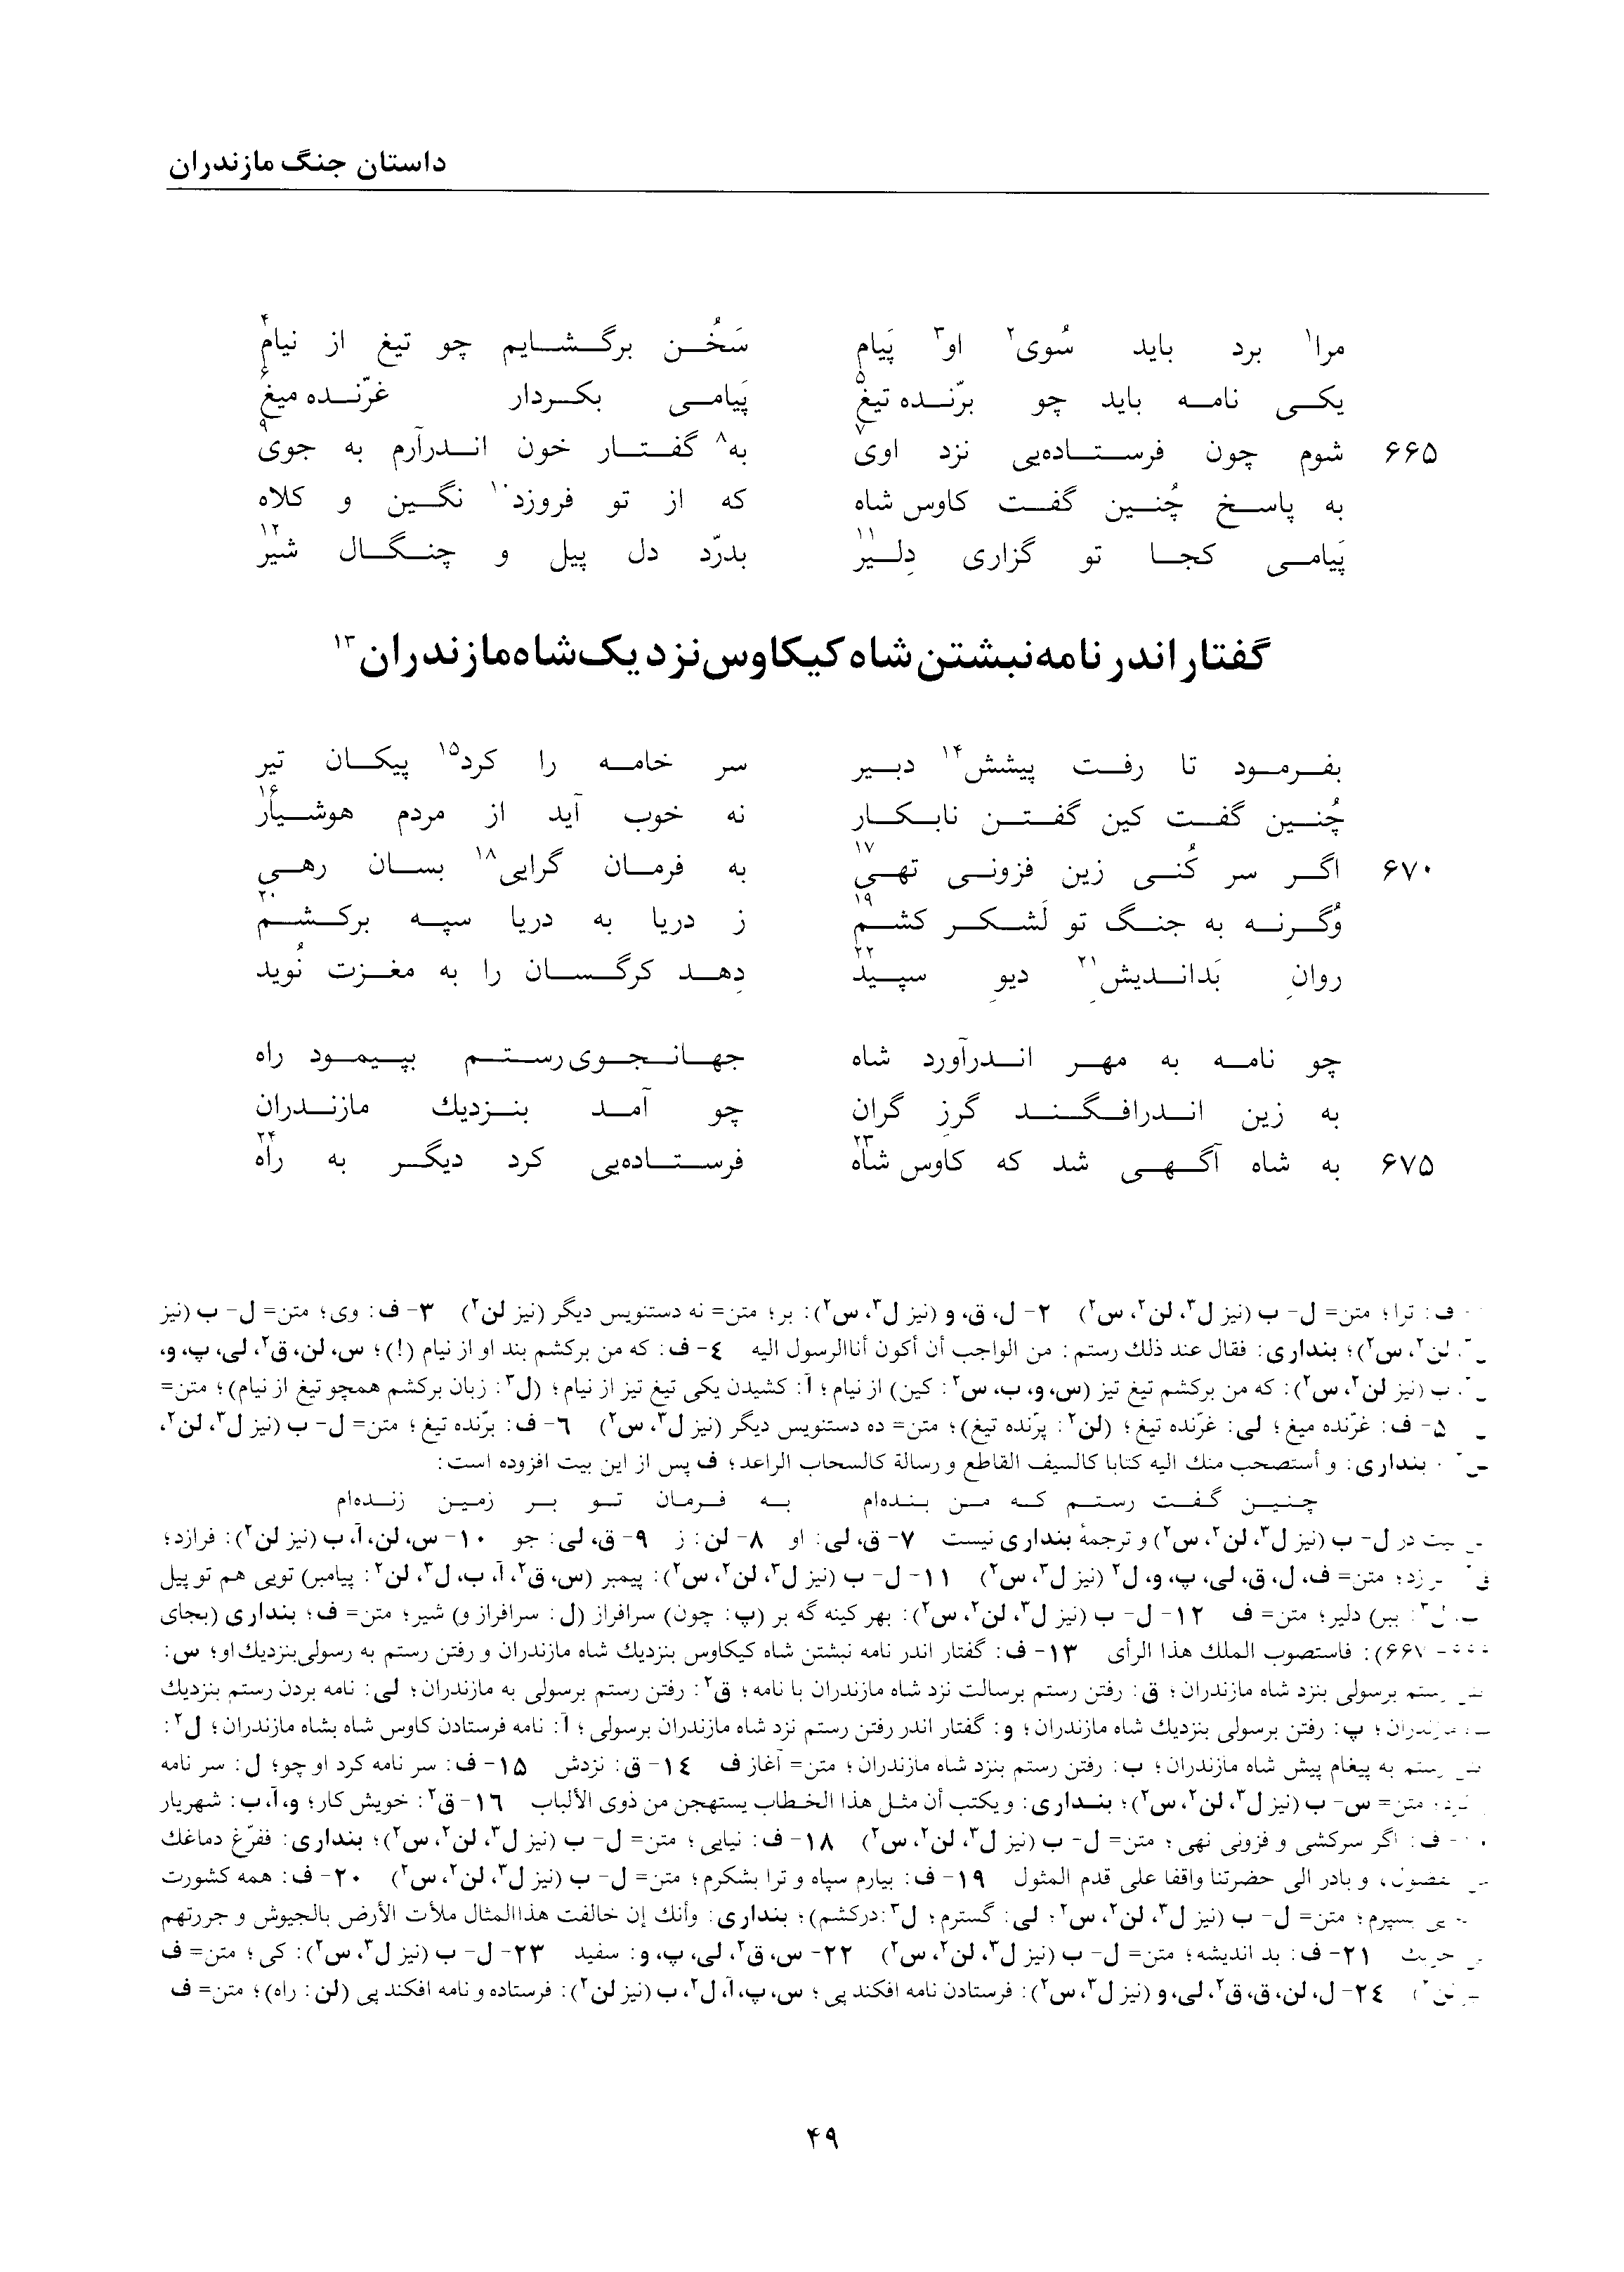 داستان جنگ مازندران
مرا۱ برد باید سُوی۲ او۳ پَیام سَخُن برگشایم چو تیغ از نیام۴
یکی نامه باید چو برّنده تیغ۵ پَیامی بکردار غرّنده میغ۶
۶۶۵ شوم چون فرستاده‌یی نزد اوی۷ به۸ گفتار خون اندرآرم به جوی۹
به پاسخ چُنین گفت کاوس شاه که از تو فروزد۱۰ نگین و کلاه
پَیامی کجا تو گزاری دِلیر۱۱ بدرّد دل پیل و چنگال شیر۱۲
گفتار اندر نامه نبشتن شاه کیکاوس نزدیک شاه مازندران۱۳
بفرمود تا رفت پیشش۱۴ دبیر سر خامه را کرد۱۵ پیکان تیر
چُنین گفت کین گفتن نابکار نه خوب آید از مردم هوشیار۱۶
۶۷۰ اگر سر کُنی زین فزونی تهی۱۷ به فرمان گرایی۱۸ بسان رهی
وُگرنه به جنگ تو لَشکر کشم۱۹ ز دریا به دریا سپه برکشم۲۰
روانِ بَداندیش۲۱ دیوِ سپید۲۲ دِهد کرگسان را به مغزت نُوید
چو نامه به مهر اندرآورد شاه جهانجوی رستم بپیمود راه
به زین اندرافگند گرزِ گران چو آمد بنزدیك مازندران
۶۷۵ به شاه آگهی شد که کاوس شاه۲۳ فرستاده‌یی کرد دیگر به راه۲۴
ف: ترا؛ متن= ل- ب (نیز ل۳، لن۲، س۲) ۲- ل، ق، و (نیز ل۳، س۲): بر؛ متن= نه دستنویس دیگر (نیز لن۲) ۳- ف: وی؛ متن= ل- ب (نیز
لن۲، س۲)؛ بنداری: فقال عند ذلك رستم: من الواجب أن أكون أنا الرسول اليه ۴- ف: که من برکشم بند او از نیام (!)؛ س، لن، ق۲، لی، پ، و،
ب (نیز لن۲، س۲): که من برکشم تیغ تیز (س، و، ب، س۲: کین) از نیام؛ آ: کشیدن یکی تیغ تیز از نیام؛ (ل۳: زبان برکشم همچو تیغ از نیام)؛ متن=
۵- ف: غرّنده میغ؛ لی: غرّنده تیغ؛ (لن۲: پرّنده تیغ)؛ متن= ده دستنویس دیگر (نیز ل۳، س۲) ۶- ف: برّنده تیغ؛ متن= ل- ب (نیز ل۳، لن۲،
بنداری: و أستصحب منك اليه كتابا كالسيف القاطع و رسالة كالسحاب الراعد؛ ف پس از این بیت افزوده است:
چنین گفت رستم که من بنده‌ام به فرمان تو بر زمین زنده‌ام
در ل- ب (نیز ل۳، لن۲، س۲) و ترجمهٔ بنداری نیست ۷- ق، لی: او ۸- لن: ز ۹- ق، لی: جو ۱۰- س، لن، آ، ب (نیز لن۲): فرازد؛
متن= ف، ل، ق، لی، پ، و، ل۲ (نیز ل۳، س۲) ۱۱- ل- ب (نیز ل۳، لن۲، س۲): پیمبر (س، ق۲، آ، ب، ل۳، لن۲: پیامبر) تویی هم تو پیل
ببر) دلیر؛ متن= ف ۱۲- ل- ب (نیز ل۳، لن۲، س۲): بهر کینه گه بر (پ: چون) سرافراز (ل: سرافراز و) شیر؛ متن= ف؛ بنداری (بجای
۶۶۷): فاستصوب الملك هذا الرأى ۱۳- ف: گفتار اندر نامه نبشتن شاه کیکاوس بنزدیك شاه مازندران و رفتن رستم به رسولی بنزدیك او؛ س:
برسولی بنزد شاه مازندران؛ ق: رفتن رستم برسالت نزد شاه مازندران با نامه؛ ق۲: رفتن رستم برسولی به مازندران؛ لی: نامه بردن رستم بنزدیك
پ: رفتن برسولی بنزدیك شاه مازندران؛ و: گفتار اندر رفتن رستم نزد شاه مازندران برسولی؛ آ: نامه فرستادن کاوس شاه بشاه مازندران؛ ل۲:
به پیغام پیش شاه مازندران؛ ب: رفتن رستم بنزد شاه مازندران؛ متن= آغاز ف ۱۴- ق: نزدش ۱۵- ف: سر نامه کرد او چو؛ ل: سر نامه
متن= س- ب (نیز ل۳، لن۲، س۲)؛ بنداری: و يكتب أن مثل هذا الخطاب يستهجن من ذوى الألباب ۱۶- ق۲: خویش کار؛ و، آ، ب: شهریار
ف: اگر سرکشی و فزونی نهی؛ متن= ل- ب (نیز ل۳، لن۲، س۲) ۱۸- ف: نیایی؛ متن= ل- ب (نیز ل۳، لن۲، س۲)؛ بنداری: ففرّغ دماغك
و بادر الى حضرتنا واقفا على قدم المثول ۱۹- ف: بیارم سپاه و ترا بشکرم؛ متن= ل- ب (نیز ل۳، لن۲، س۲) ۲۰- ف: همه کشورت
بسپرم؛ متن= ل- ب (نیز ل۳، لن۲، س۲؛ لی: گسترم؛ ل۳: درکشم)؛ بنداری: وأنك إن خالفت هذا المثال ملأت الأرض بالجيوش و جررتهم
۲۱- ف: بد اندیشه؛ متن= ل- ب (نیز ل۳، لن۲، س۲) ۲۲- س، ق۲، لی، پ، و: سفید ۲۳- ل- ب (نیز ل۳، س۲): کی؛ متن= ف
۲۴- ل، لن، ق، ق۲، لی، و (نیز ل۳، س۲): فرستادن نامه افکند پی؛ س، پ، آ، ل۲، ب (نیز لن۲): فرستاده و نامه افکند پی (لن: راه)؛ متن= ف
۴۹